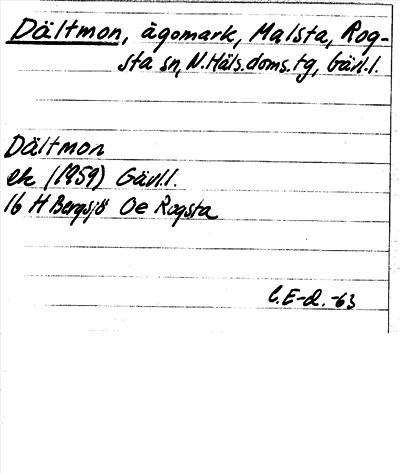 Dältmon, ägomark, Malsta, Rog-
sta sn, N.Häls.doms.tg, Gävl.l.
Dältmon
ek (1959) Gävl.l.
16 H Bergsjö Oe Rogsta
C.E-d.-63